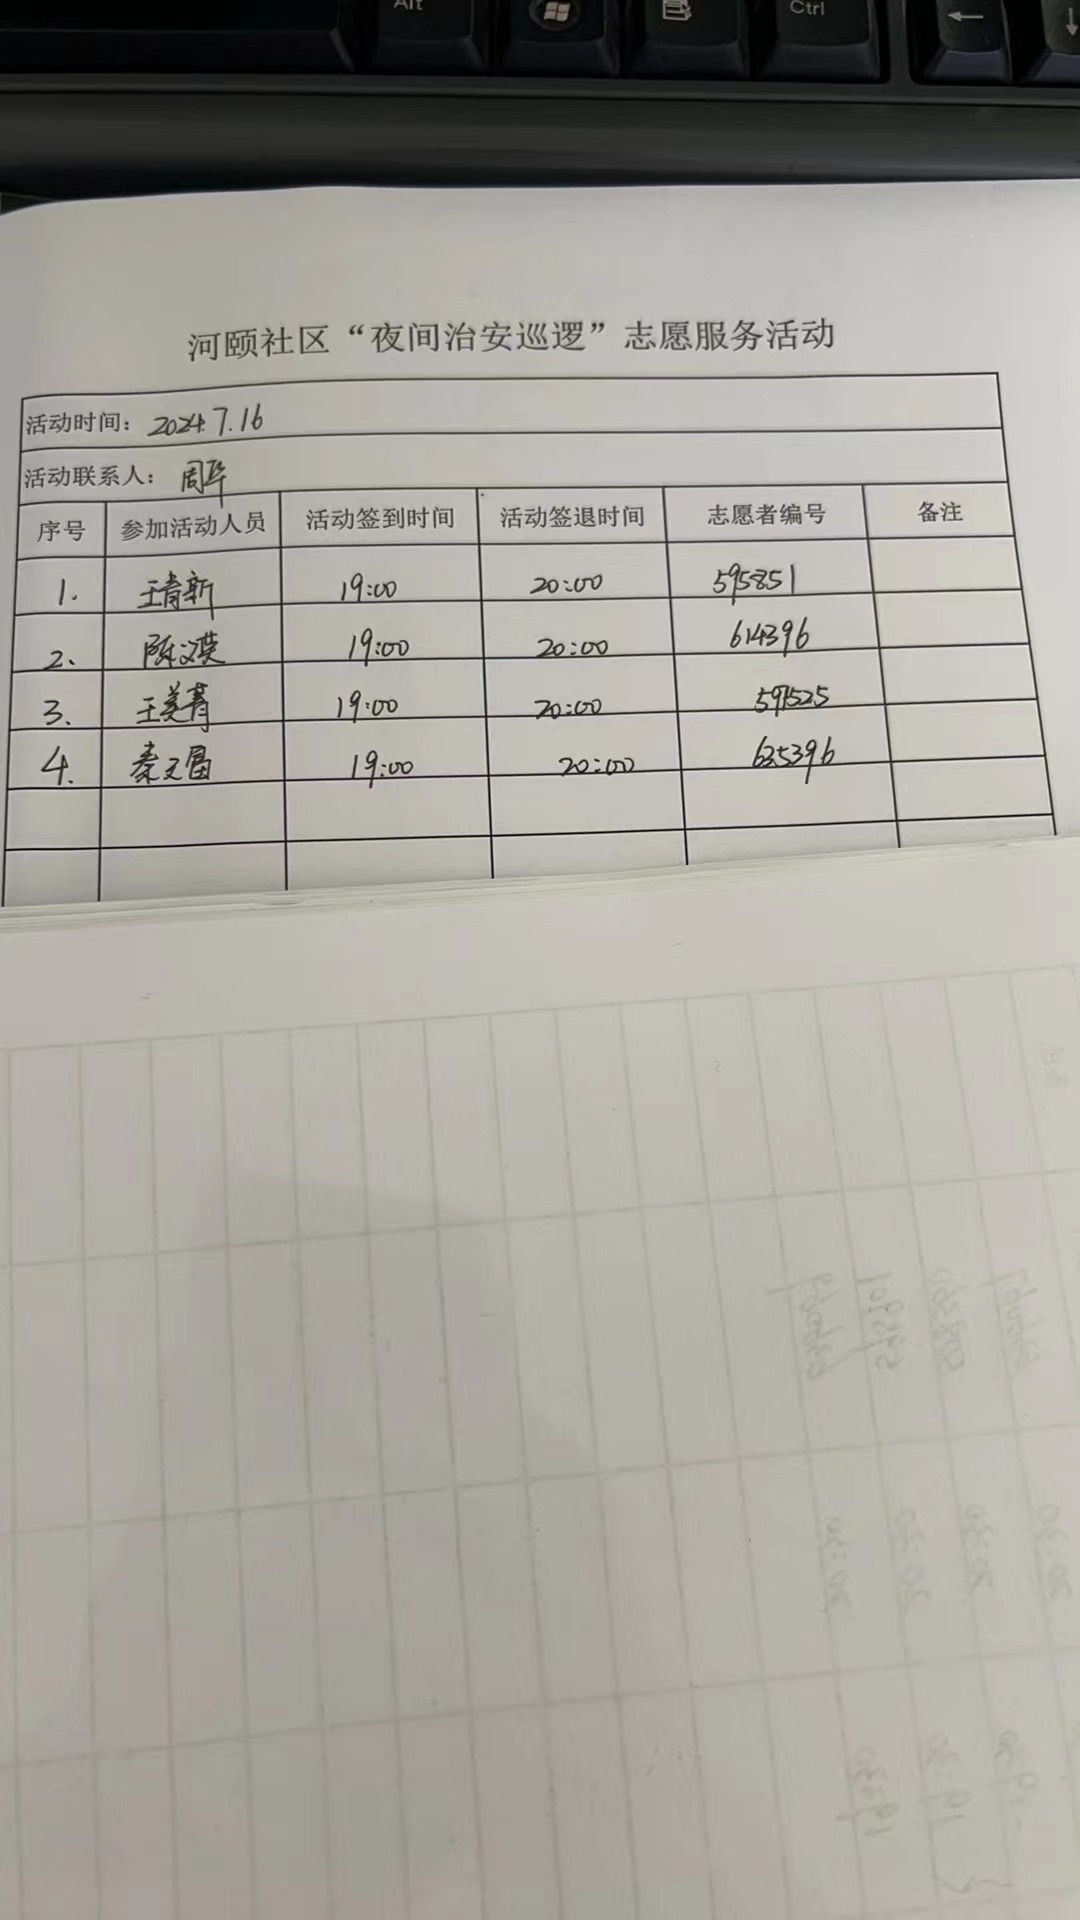 Alt
Ctrl
河颐社区“夜间治安巡逻”志愿服务活动
活动时间: 2024.7.16
活动联系人: 周华
序号 参加活动人员 活动签到时间 活动签退时间 志愿者编号 备注
1. 王青新 19:00 20:00 595851
2、 陈文英 19:00 20:00 614396
3、 王美菁 19:00 20:00 591525
4. 秦文富 19:00 20:00 635396